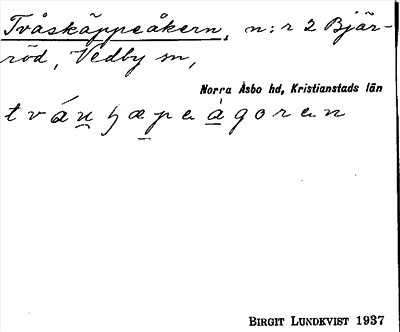 Tvåskäppeåkern, n:r 2 Bjär-
röd, Vedby sn,
Norra Åsbo hd, Kristianstads län
BIRGIT LUNDKVIST 1937